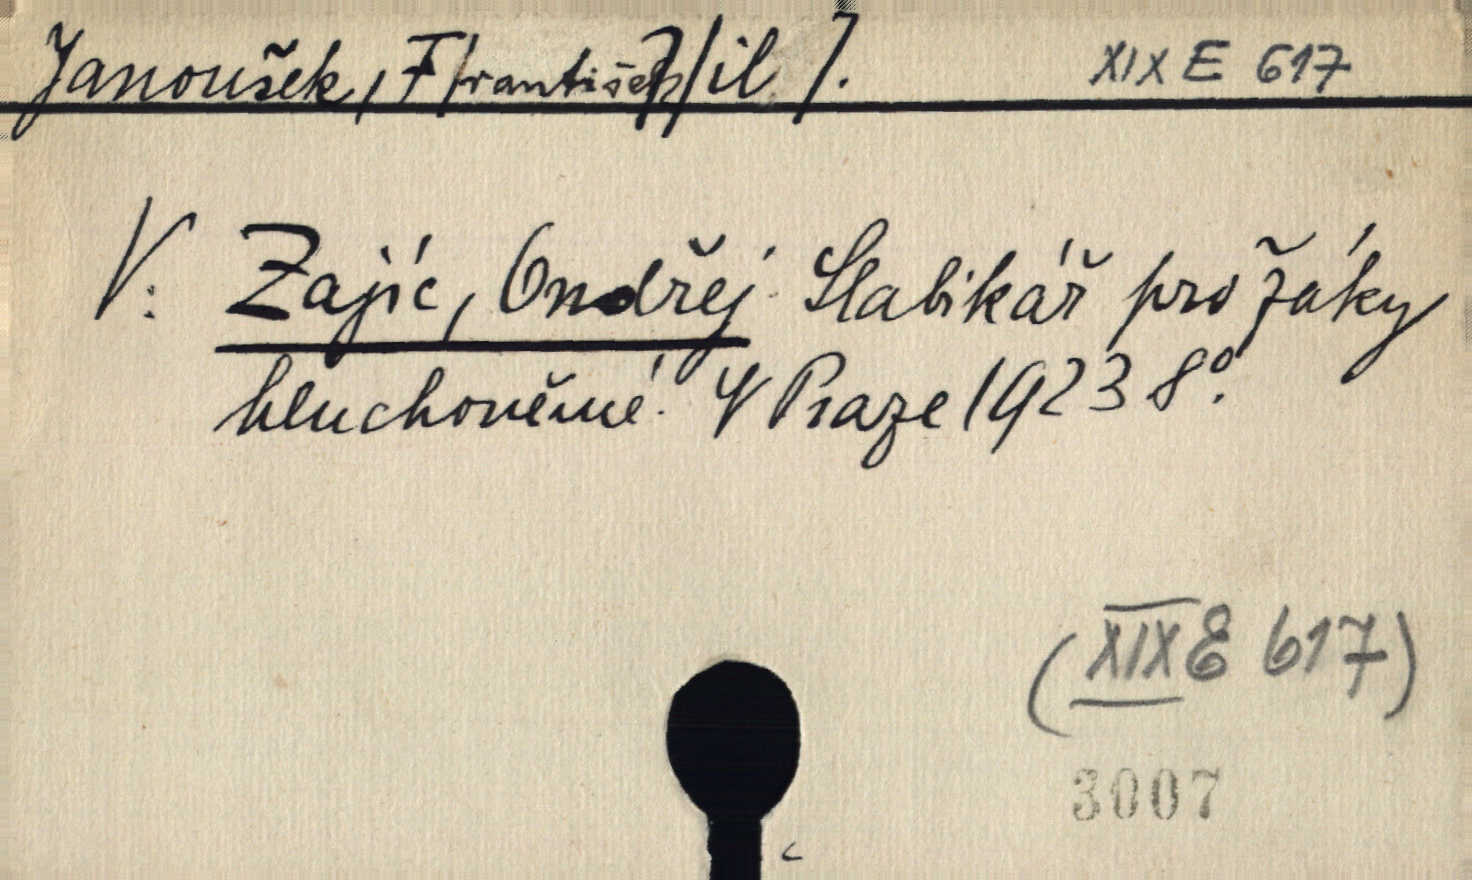 Janoušek, F/rantišek/ /il/. XIX E 617
V: Zajíc, Ondřej. Slabikář pro žáky
hluchoněmé. V Praze 1923 8°.
(XIX E 617)
3007